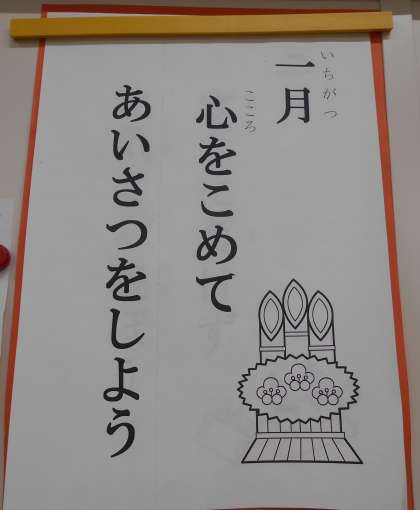 一月
いちがつ
心をこめて
こころ
あいさつをしよう